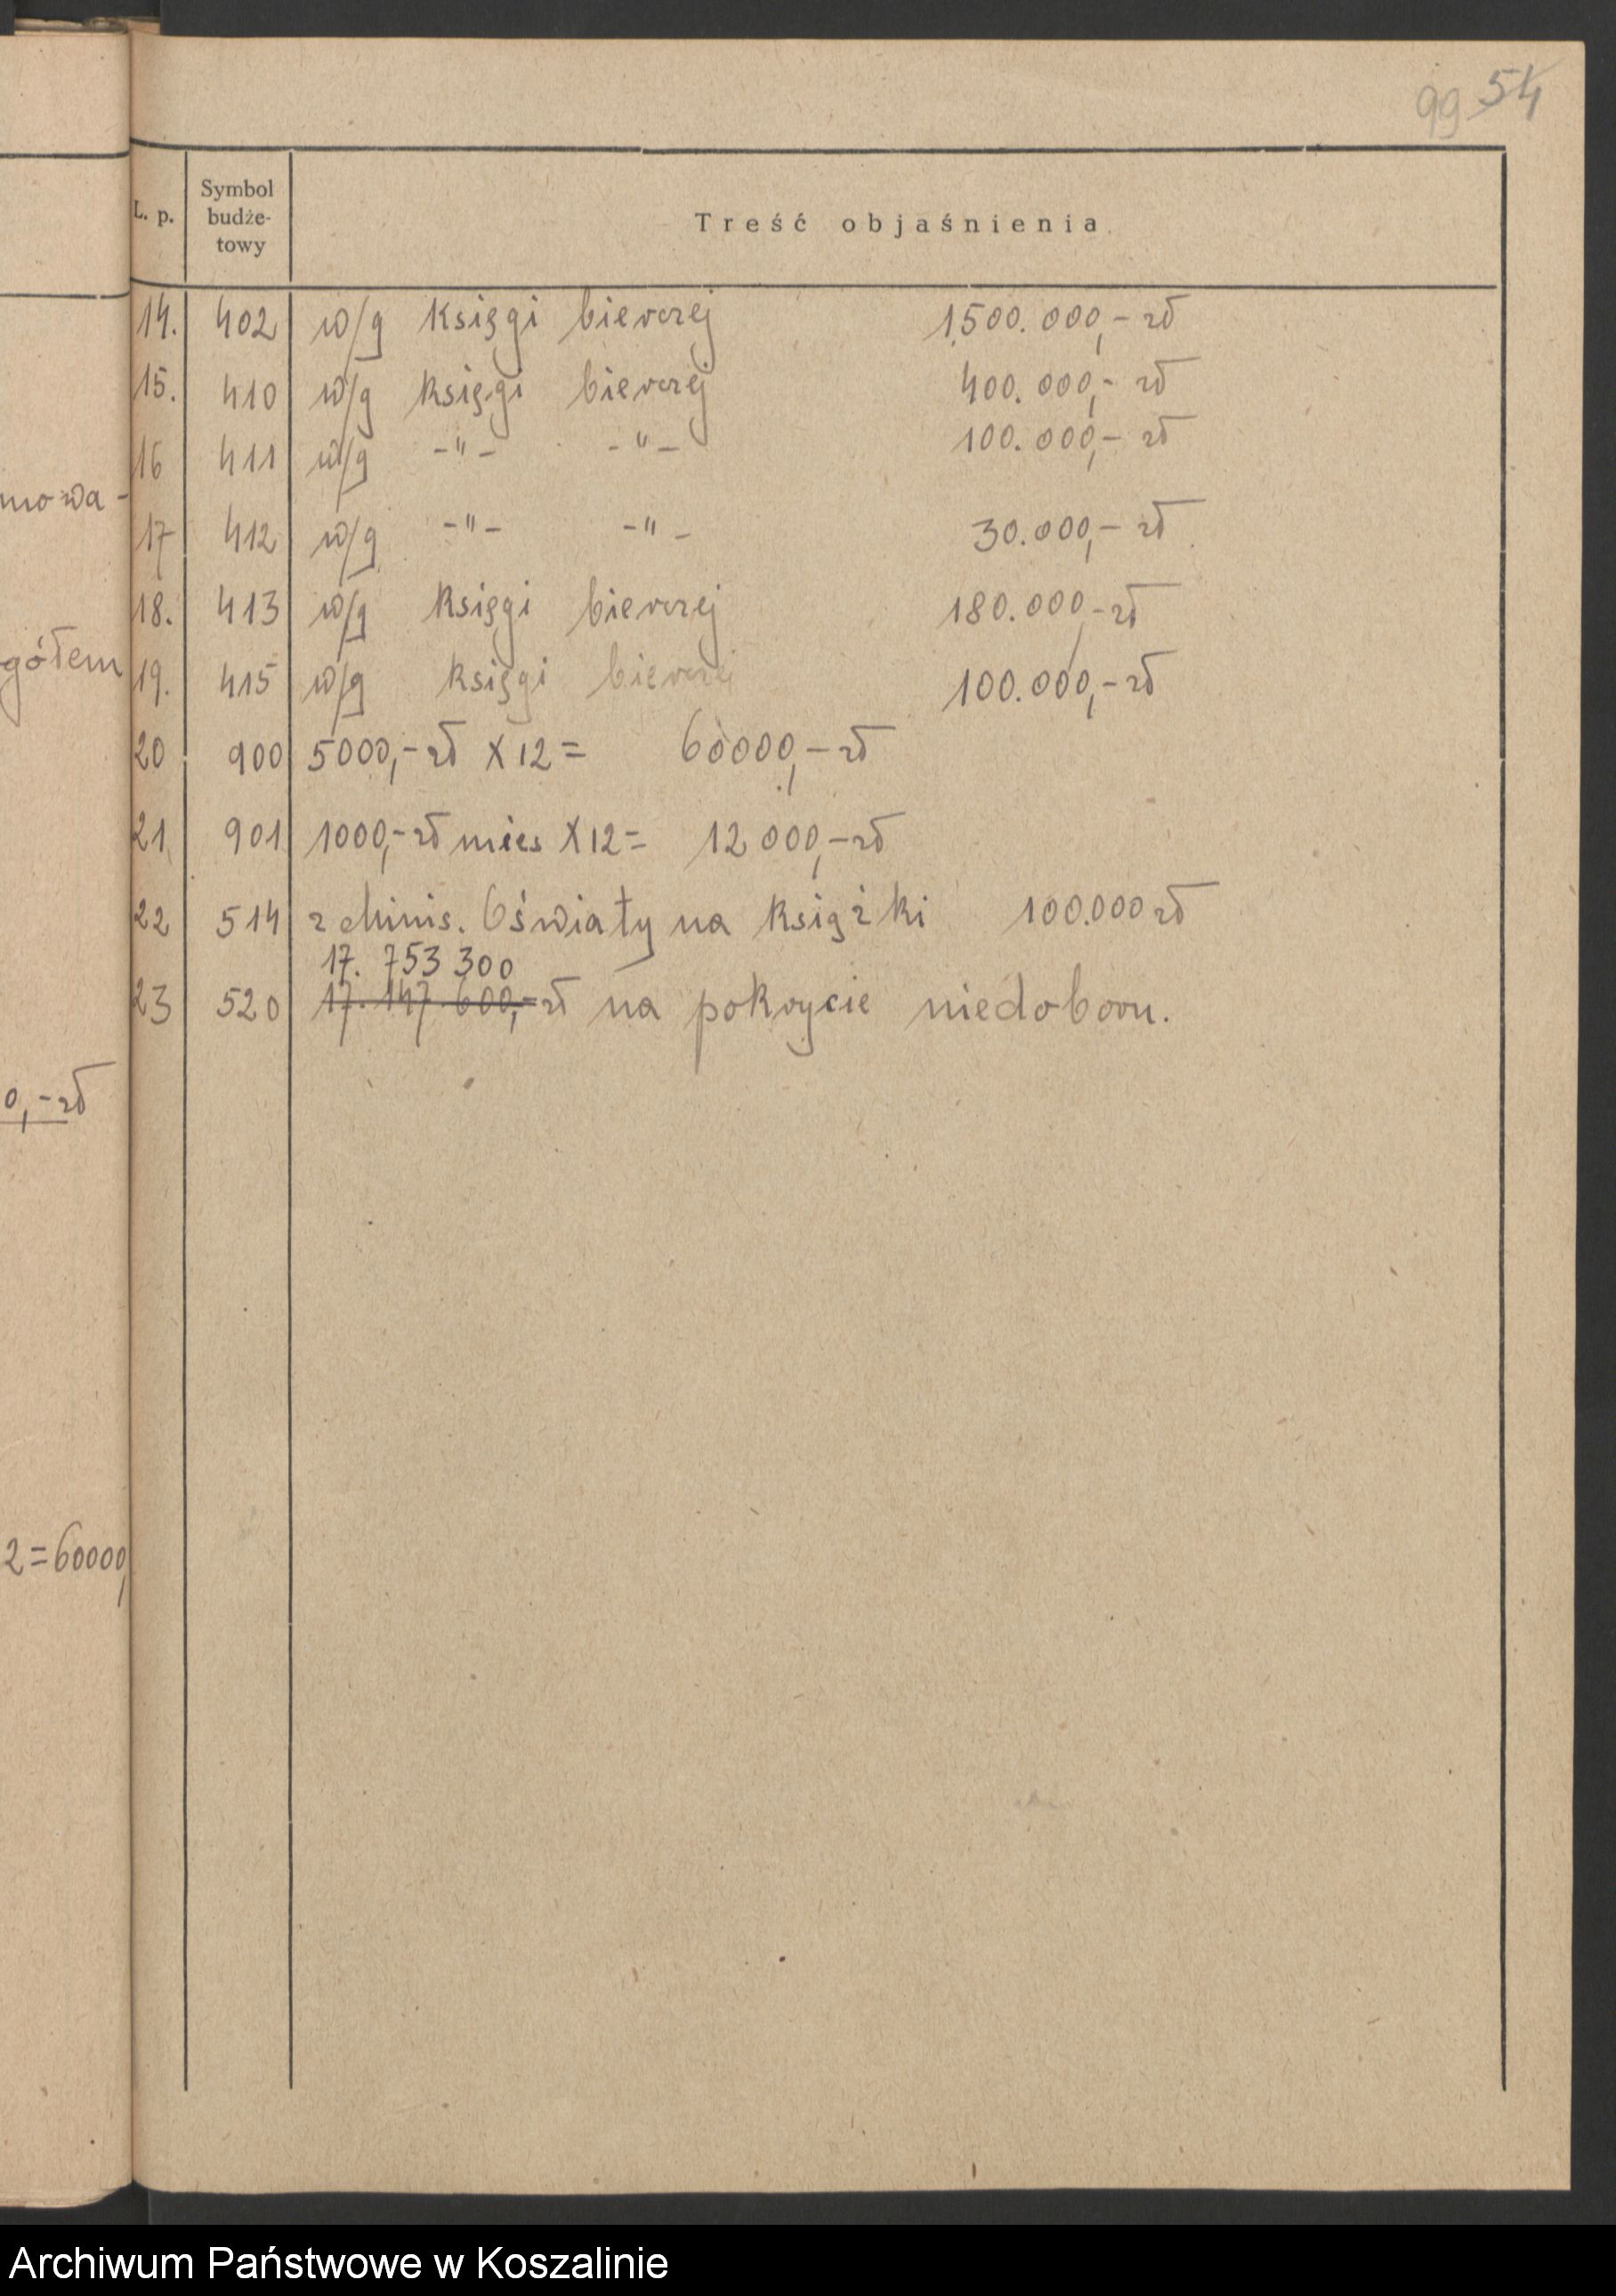 99 54
L. p.
Symbol
budże-
towy
Treść objaśnienia
14. 402 w/g Księgi bierczej 1.500.000,- zł
15. 410 w/g Księgi bierczej 400.000,- zł
16 411 w/g -"- -"- 100.000,- zł
17 412 w/g -"- -"- 30.000,- zł
18. 413 w/g Księgi bierczej 180.000,- zł
19. 415 w/g Księgi bierczej 100.000,- zł
20 900 5000,- zł X 12 = 60000,- zł
21 901 1000,- zł mies X 12 = 12 000,- zł
22 514 z Minis. Oświaty na Książki 100.000 zł
17. 753 300
23 520 17. 147. 600,- zł na pokrycie niedoboru.
mowa-
gółem
0,- zł
2=60000,
Archiwum Państwowe w Koszalinie